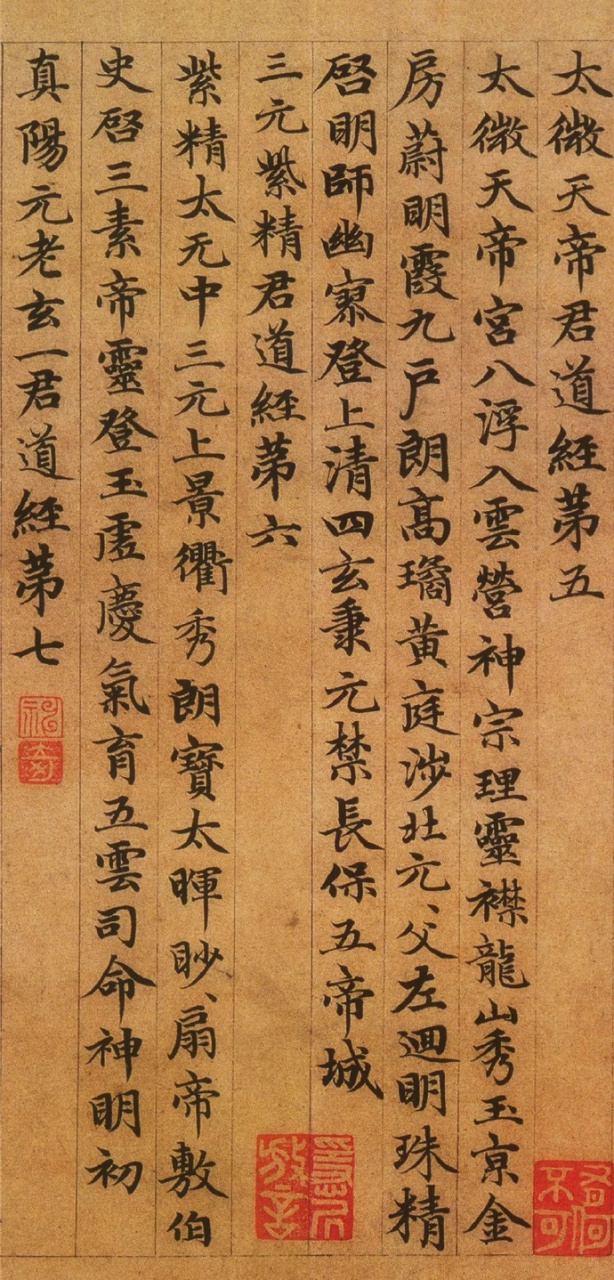 太微天帝君道經第五
太微天帝宮八浮入雲營神宗理靈襟龍山秀玉京金
房蔚明霞九戶朗高璚黃庭涉北元、父左廻明珠精
啓明師幽寥登上清四玄秉元禁長保五帝城
三元紫精君道經第六
紫精太无中三元上景衢秀朗寶太暉眇、扇帝敷伯
史啓三素帝靈登玉虛慶氣育五雲司命神明初
真陽元老玄一君道經第七